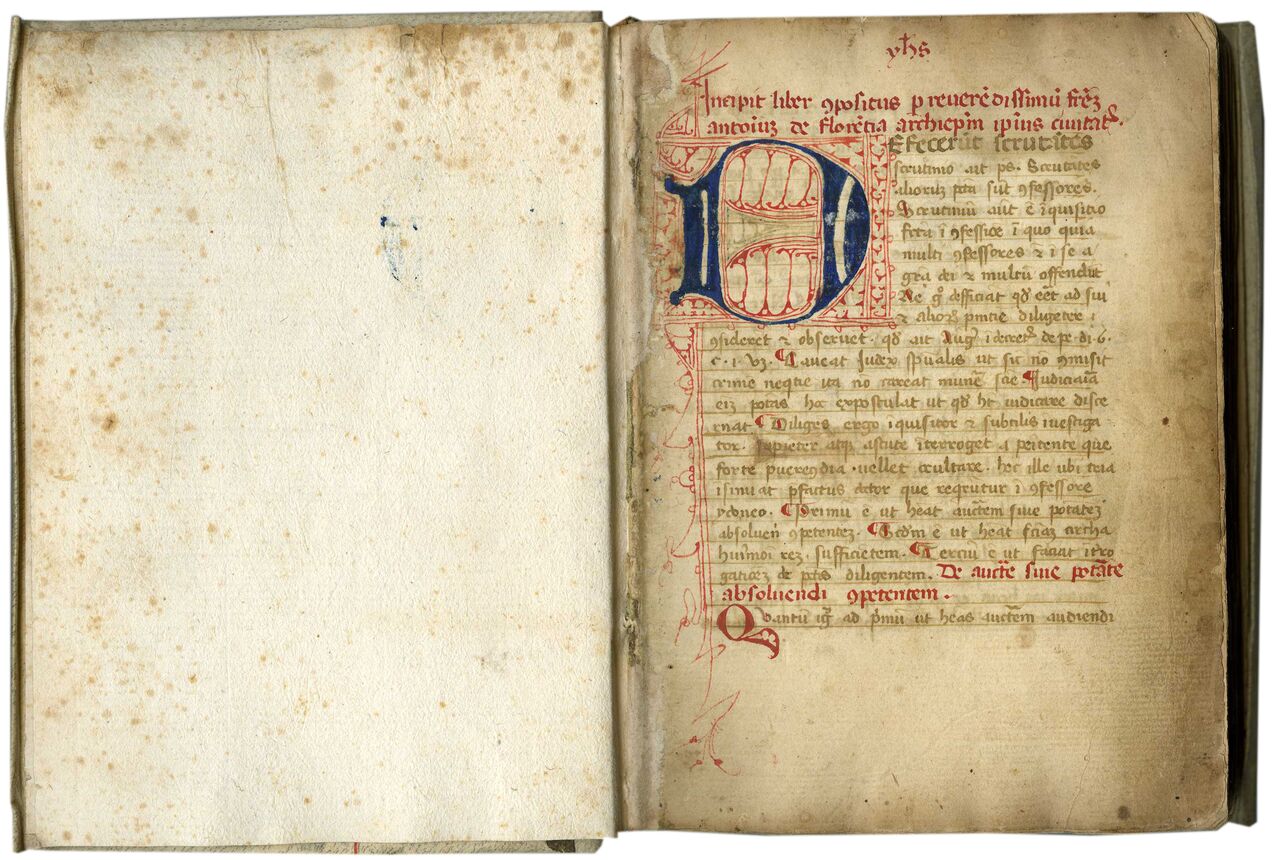 yħs
Incipit liber ꝯpositus p reverēdissimū frēȝ
antoiuȝ de florētia archiep̄m ip̄ius ciuitatꝭ.
DEfecerūt scrutātes
scrutinio ait ps. Scrutātes
alioruȝ pc̄ta sūt ꝯfessores.
Scrutiniū aūt ē īquisitio
fc̄ta ī ꝯfessiōe ī quo quia
multi ꝯfessores ⁊ ī se a
gra dei ⁊ multū offendūt
Ne gͦ deficiat qđ eēt ad sui
⁊ alioꝝ diligēter ꝯ
ꝯsideret ⁊ observet. qđ ait Augꝰ ī decretꝭ de pe. di. 6.
c. i. vȝ. Caveat Iudex sp̄ualis ut sic nō ꝯmisit
crimē neqtie ita nō careat munē sc̄ie Iudiciaīā
eiȝ potās hoc expostulat ut qđ hȝ iudicare disce
rnat Diligēs ergo īquisitor ⁊ subtilis īvestiga
tor. sapiēter atqȝ astute īterroget a penitente que
forte verecūdia vellet ocultare. hec ille ubi tria
īsinuat p̄fatus doctor que reqrūtur ī ꝯfessore
ydoneo. Primū ē ut heat auctem̄ sive potāteȝ
absolvēdi ꝯpetenteȝ. Scd̄m ē ut heat sc̄iaȝ circha
huīmoi reȝ sufficiētem. Terciū ē ut faciat īrro
gatiōeȝ de pc̄tis diligentem. De aucte sive potāte
absoluendi ꝯpetentem.
Quantū igͬ ad pͥmū ut heas auctem̄ audiendi